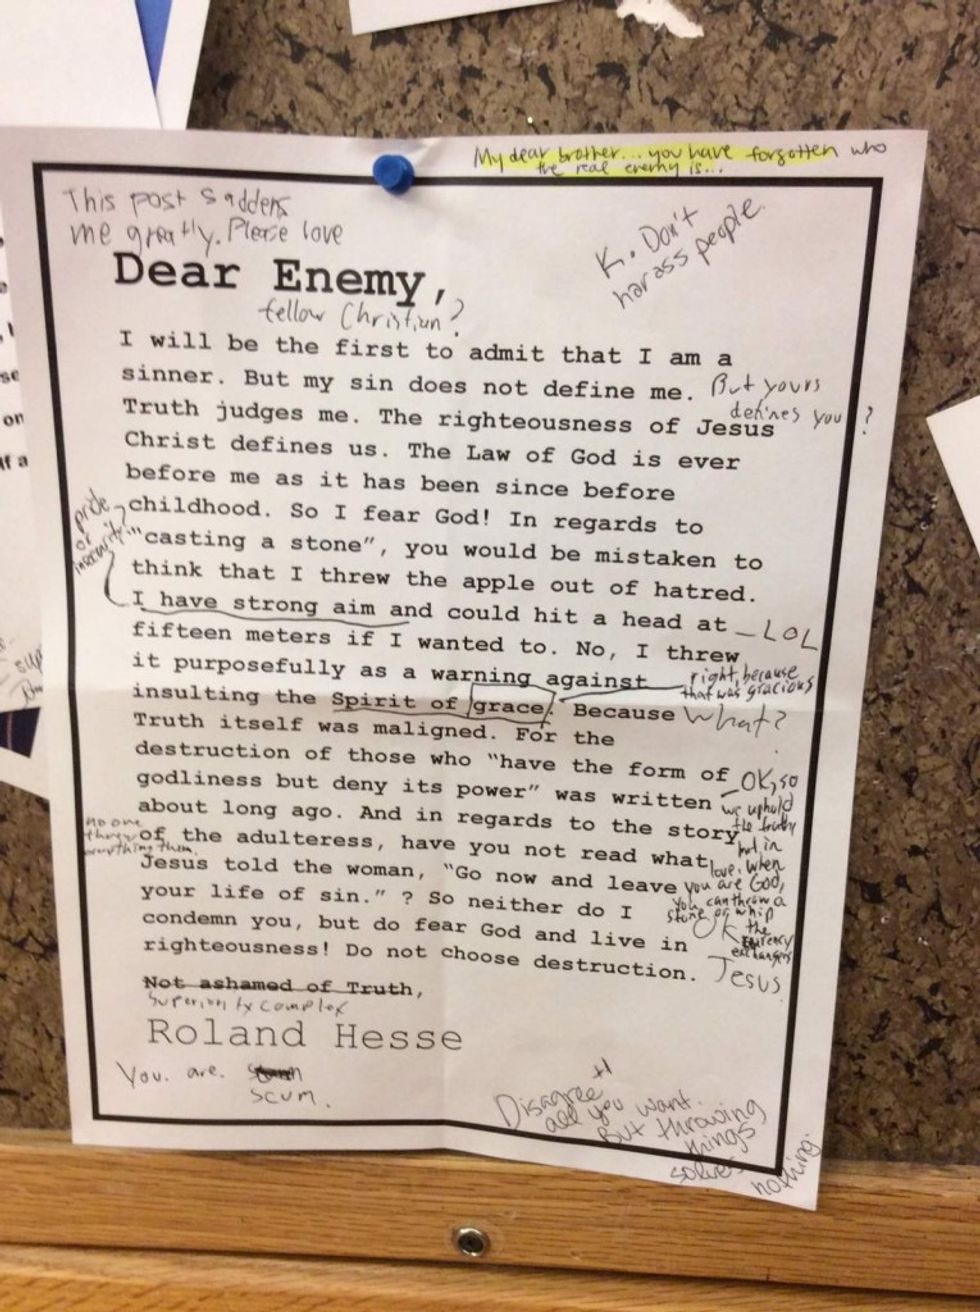 My dear brother... you have forgotten who
the real enemy is...
This post saddens
me greatly. Please love
K. Don't
harass people.
Dear Enemy,
fellow Christian?
I will be the first to admit that I am a
sinner. But my sin does not define me. But yours
defines you?
Truth judges me. The righteousness of Jesus
Christ defines us. The Law of God is ever
before me as it has been since before
childhood. So I fear God! In regards to
pride
or
insecurity?
"casting a stone", you would be mistaken to
think that I threw the apple out of hatred.
I have strong aim and could hit a head at LOL
fifteen meters if I wanted to. No, I threw
it purposefully as a warning against right, because
that was gracious
insulting the Spirit of grace. Because What?
Truth itself was maligned. For the
destruction of those who "have the form of
godliness but deny its power" was written
about long ago. And in regards to the story
OK, so
we uphold
the truth
but in
love. When
you are God,
you can throw a
stone or whip
the
currency
exchangers
no one
threw
anything then.
of the adulteress, have you not read what
Jesus told the woman, "Go now and leave
your life of sin." ? So neither do I
condemn you, but do fear God and live in
righteousness! Do not choose destruction.
OK
Jesus
Not ashamed of Truth,
Superiority complex
Roland Hesse
You. are.
scum.
Disagree
all you want.
But throwing
things
solves
nothing.
+1